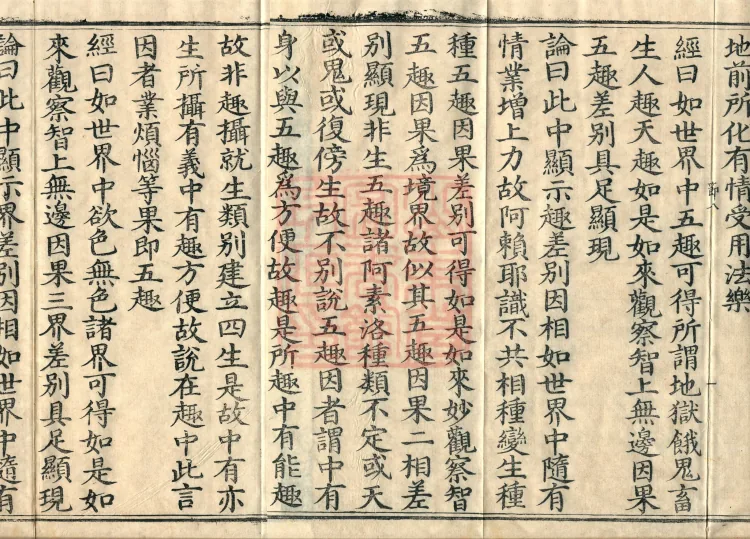 地前所化有情受用法樂
經曰如世界中五趣可得所謂地獄餓鬼畜
生人趣天趣如是如來觀察智上無邊因果
五趣差別具足顯現
論曰此中顯示趣差別因相如世界中隨有
情業增上力故阿賴耶識不共相種變生種
種五趣因果差別可得如是如來妙觀察智
五趣因果爲境界故似其五趣因果二相差
別顯現非生五趣諸阿素洛種類不定或天
或鬼或復傍生故不別說五趣因者謂中有
身以與五趣爲方便故趣是所趣中有能趣
故非趣攝就生類別建立四生是故中有亦
生所攝有義中有趣方便故說在趣中此言
因者業煩惱等果即五趣
經曰如世界中欲色無色諸界可得如是如
來觀察智上無邊因果三界差別具足顯現
論曰此中顯示界差別因相如世界中隨有